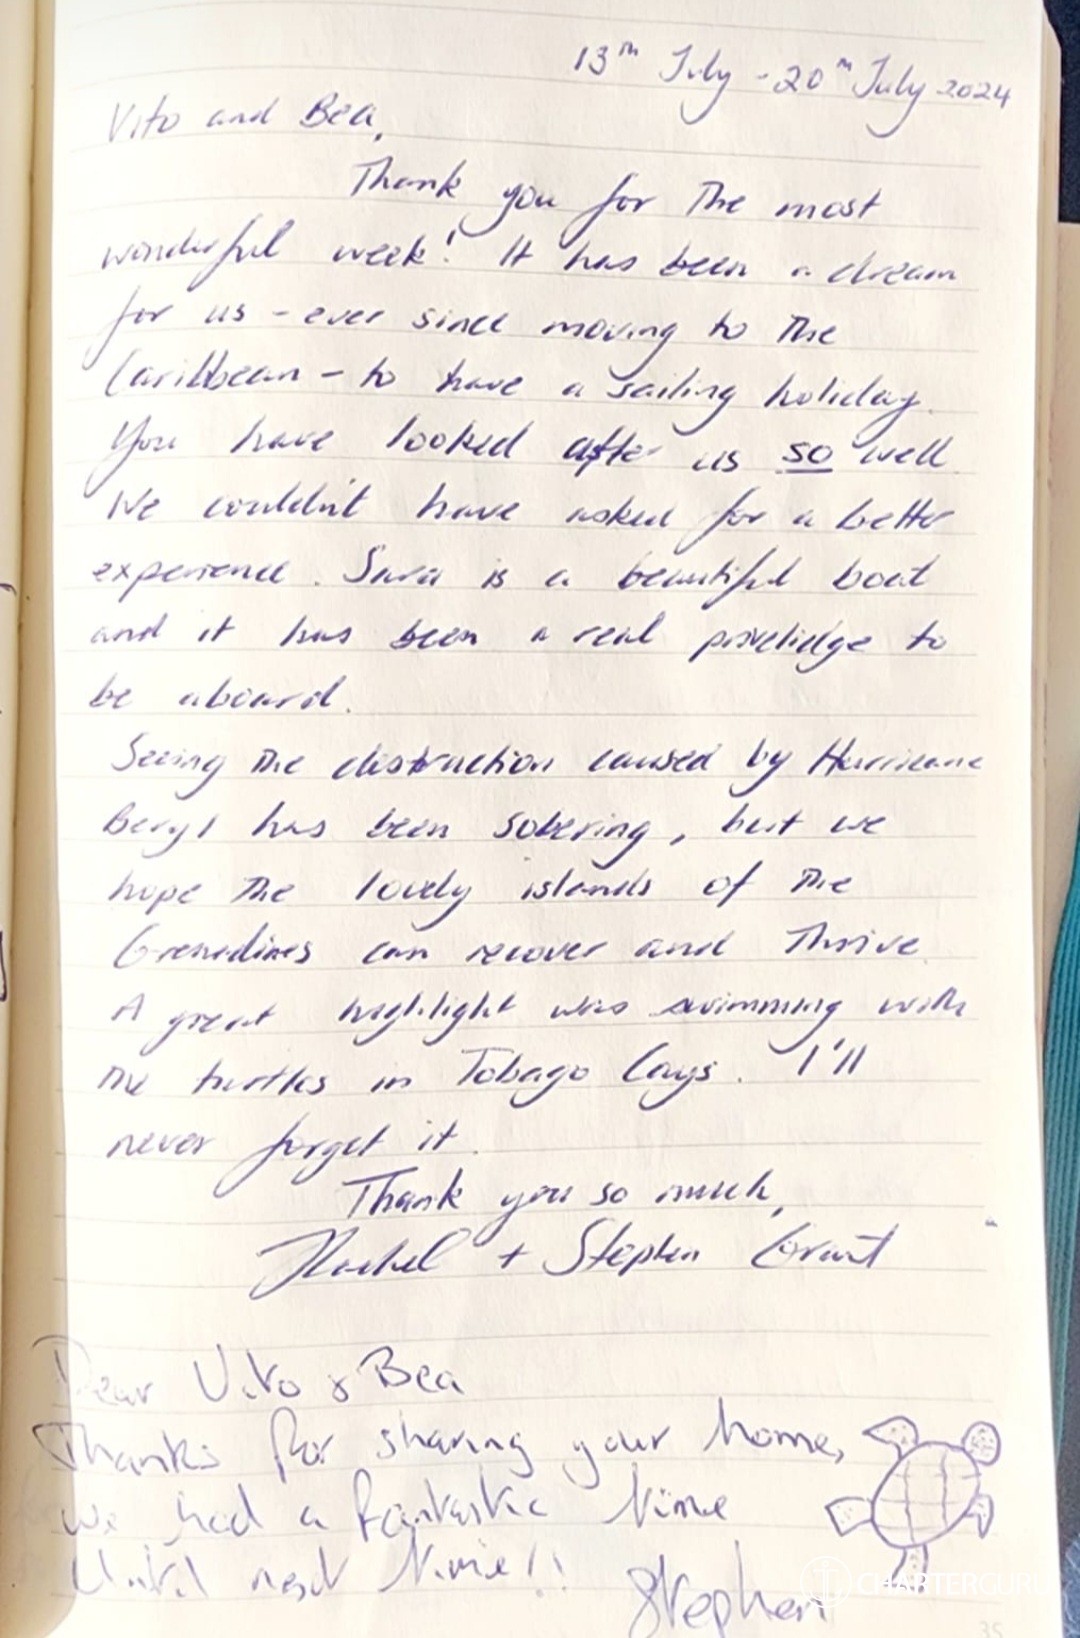 13th July - 20th July 2024
Vito and Bea,
Thank you for the most
wonderful week! It has been a dream
for us - ever since moving to the
Caribbean - to have a sailing holiday.
You have looked after us so well.
We couldn't have asked for a better
experience. Sava is a beautiful boat
and it has been a real privelidge to
be aboard.
Seeing the destruction caused by Hurricane
Beryl has been sobering, but we
hope the lovely islands of the
Grenadines can recover and thrive.
A great highlight was swimming with
the turtles in Tobago Cays. I'll
never forget it.
Thank you so much,
Rachel + Stephen Grant
Dear Vito & Bea
Thanks for sharing your home,
we had a fantastic time
Until next time!!
Stephen
CHARTERGURU
35